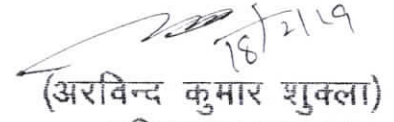 18/2/19
(अरविन्द कुमार शुक्ला)